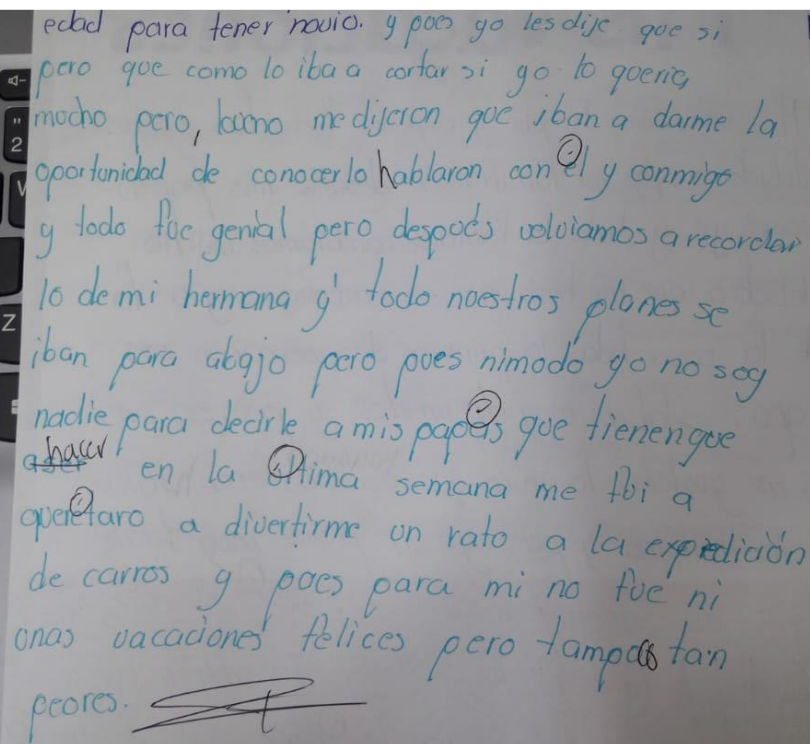 edad para tener novio. y pues yo les dije que si
pero que como lo iba a cortar si yo lo queria
mucho pero, bueno me dijeron que iban a darme la
oportunidad de conocerlo hablaron con él y conmigo
y todo fue genial pero después volviamos a recordar
lo de mi hermana y todo nuestros planes se
iban para abajo pero pues nimodo yo no soy
nadie para decirle a mis papás que tienen que
hacer en la última semana me fui a
querétaro a divertirme un rato a la expedición
de carros y pues para mi no fue ni
unas vacaciones felices pero tampoco tan
peores.
"
2
Z